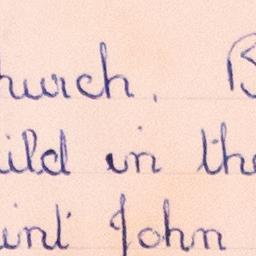 hurch. B
ild in the
int John